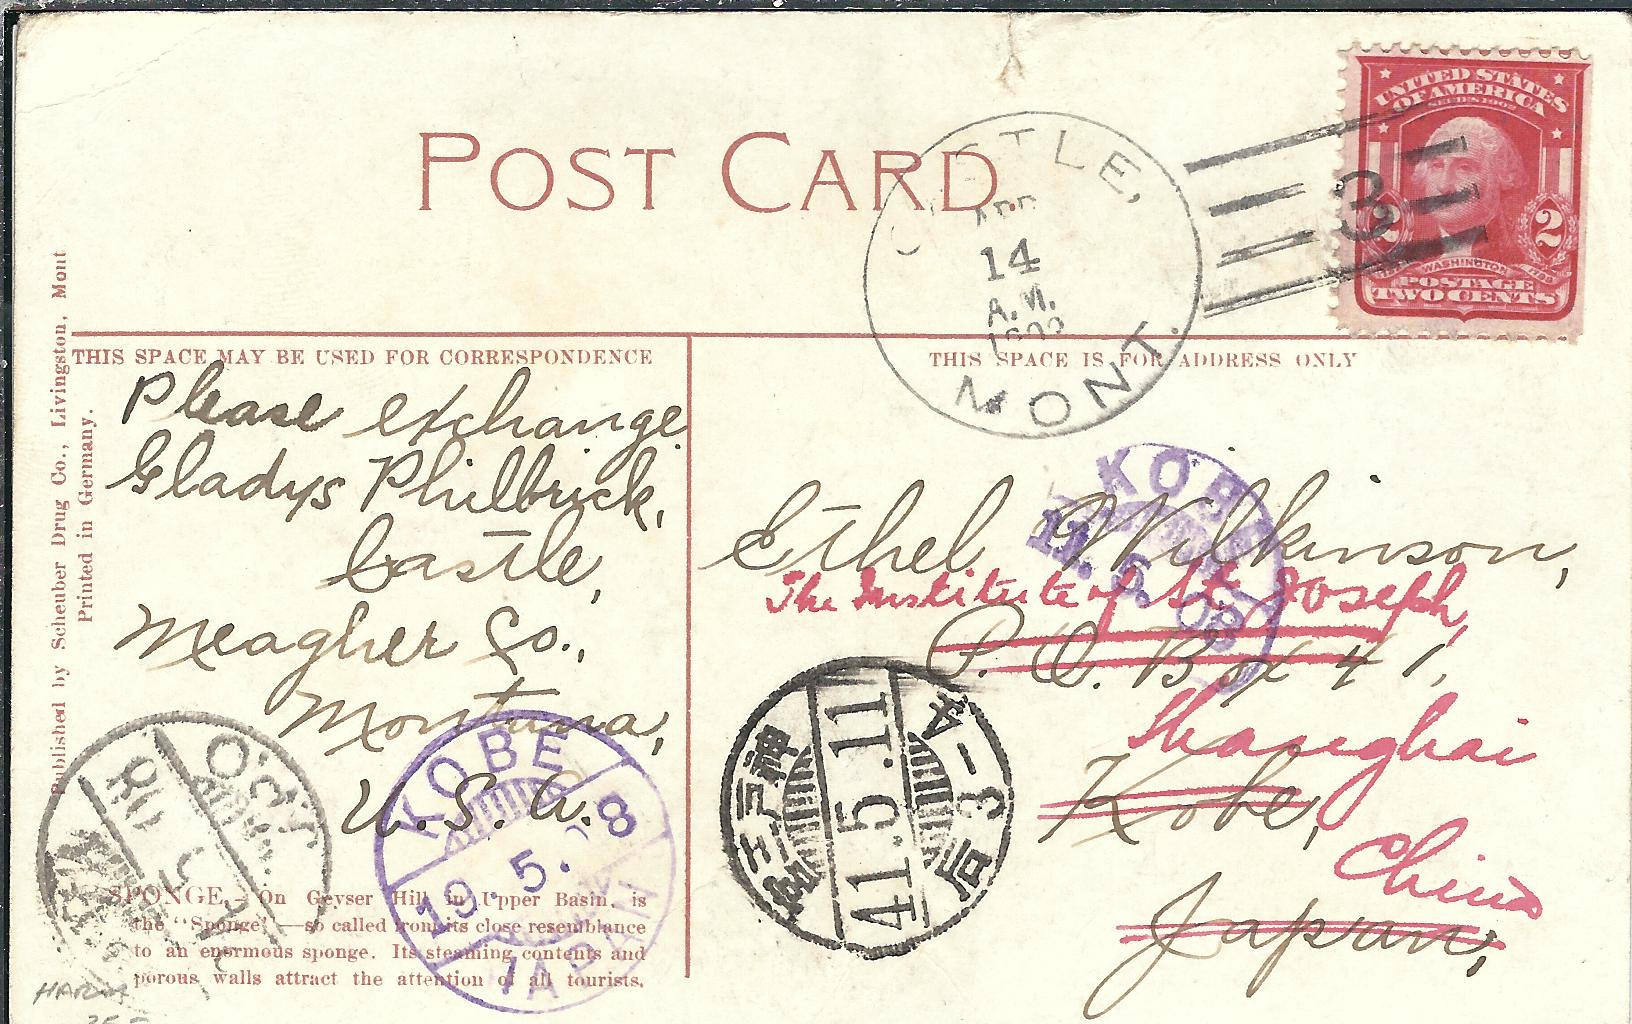 POST CARD
CASTLE,
APR
14
A.M.
MONT.
3
UNITED STATES
OF AMERICA
SERIES 1902
2 2
WASHINGTON
POSTAGE
TWO CENTS
Published by Scheuber Drug Co., Livingston, Mont
Printed in Germany.
THIS SPACE MAY BE USED FOR CORRESPONDENCE
Please exchange
Gladys Philbrick,
Castle,
Meagher Co.,
Montana,
U. S. A.
SPONGE.—On Geyser Hill in Upper Basin, is
the "Sponge"—so called from its close resemblance
to an enormous sponge. Its steaming contents and
porous walls attract the attention of all tourists.
KOBE
19.5.08
JAPAN
THIS SPACE IS FOR ADDRESS ONLY
KOBE
11.5.08
Ethel Wilkinson,
The Institute of St. Joseph,
P. O. Box 41,
Shanghai
Kobe,
China
Japan,
神戸三宮
41.5.11
后3-4